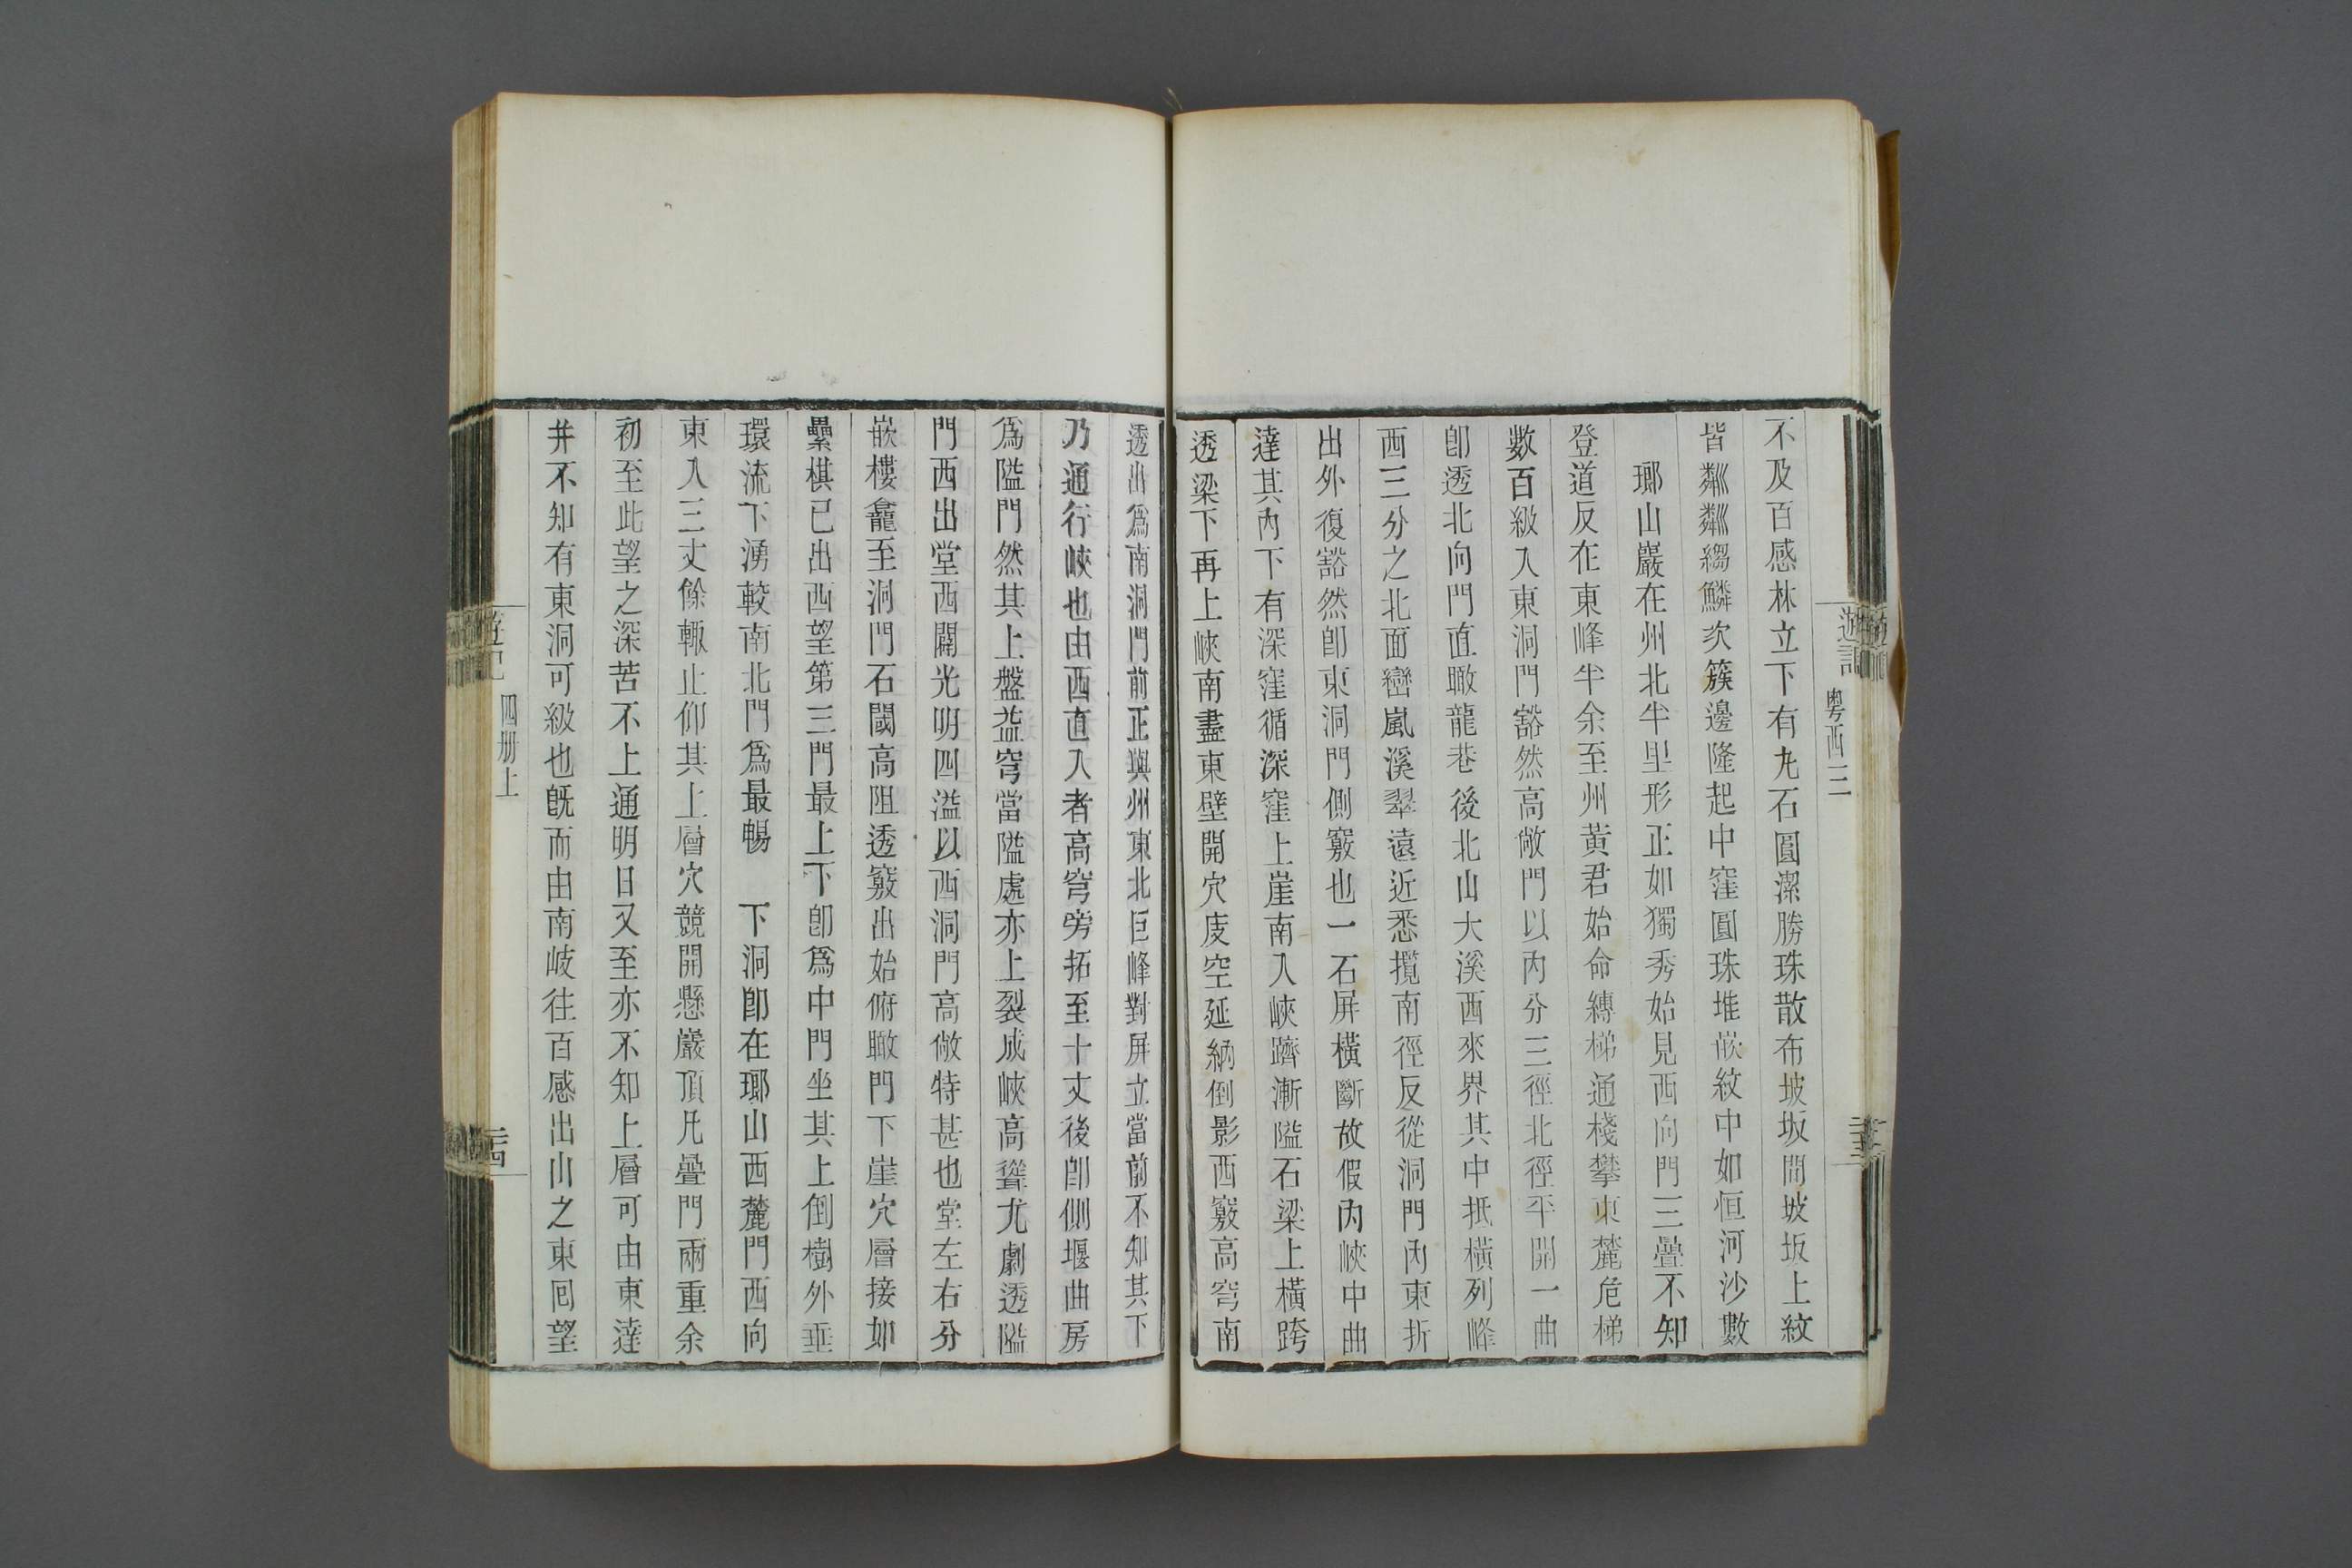 遊記
粵西三
不及百感林立下有丸石圓潔勝珠散布坡坂間坡坂上紋
皆粼粼縐鱗次簇邊隆起中窪圓珠堆嵌紋中如恒河沙數
瑯山巖在州北半里形正如獨秀始見西向門三疊不知
登道反在東峰半余至州黃君始命縛梯通棧攀東麓危梯
數百級入東洞門豁然高敞門以內分三徑北徑平開一曲
卽透北向門直瞰龍巷後北山大溪西來界其中抵橫列峰
西三分之北面巒嵐溪翠遠近悉攬南徑反從洞門內東折
出外復豁然卽東洞門側竅也一石屏橫斷故假內峽中曲
達其內下有深窪循深窪上崖南入峽躋漸隘石梁上橫跨
透梁下再上峽南盡東壁開穴庋空延納倒影西竅高穹南
透出爲南洞門前正與州東北巨峰對屏立當前不知其下
乃通行峽也由西直入者高穹旁拓至十丈後卽側堰曲房
爲隘門然其上盤益穹當隘處亦上裂成峽高聳尤劇透隘
門西出堂西闢光明四溢以西洞門高敞特甚也堂左右分
嵌樓龕至洞門石閾高阻透竅出始俯瞰門下崖穴層接如
纍棋已出西望第三門最上下卽爲中門坐其上倒樹外垂
環流下湧較南北門爲最暢　下洞卽在瑯山西麓門西向
東入三丈餘輒止仰其上層穴競開懸巖頂凡疊門兩重余
初至此望之深苦不上通明日又至亦不知上層可由東達
并不知有東洞可級也旣而由南岐往百感出山之東囘望
四冊上